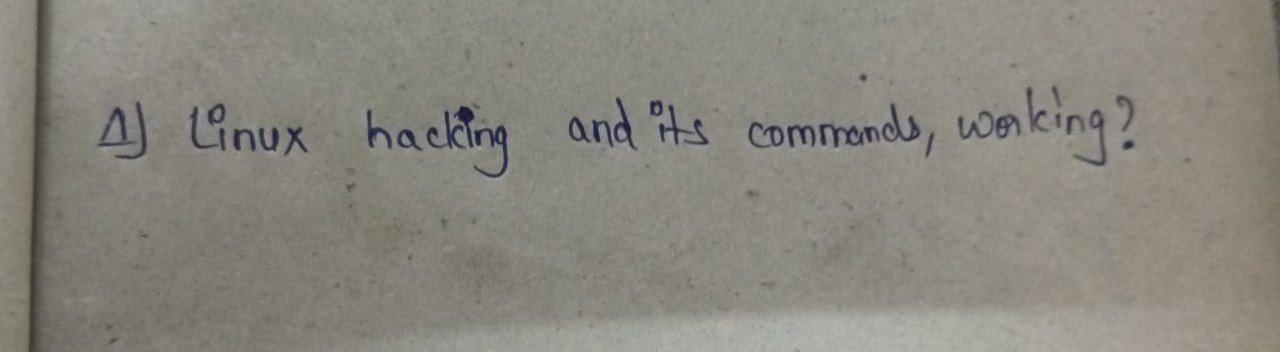 1) Linux hacking and its commands, working?